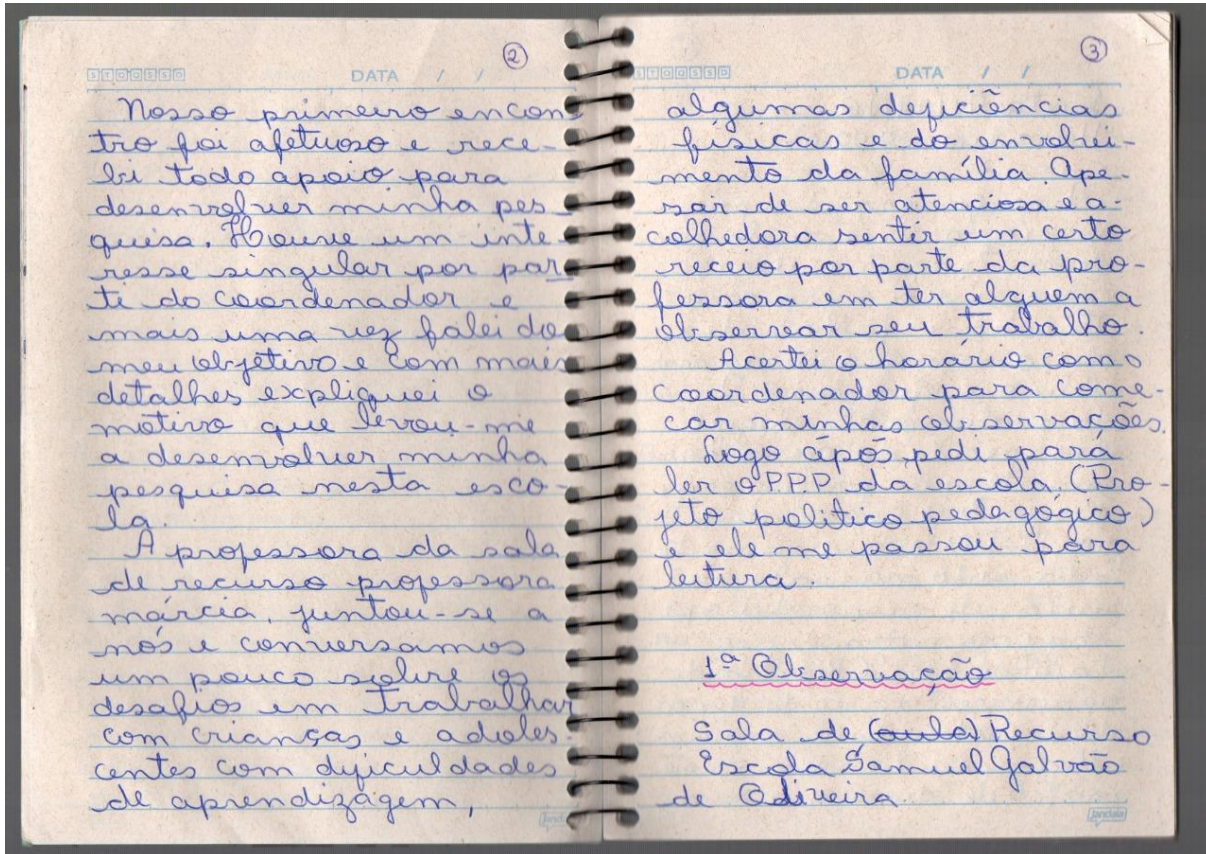 2
S T Q Q S S D DATA / /
Nosso primeiro encon
tro foi afetuoso e rece-
bi todo apoio para
desenvolver minha pes
quisa. Houve um inte
resse singular por par
te do coordenador e
mais uma vez falei do
meu objetivo e com mais
detalhes expliquei o
motivo que levou-me
a desenvolver minha
pesquisa nesta esco-
la.
A professora da sala
de recurso professora
márcia, juntou-se a
nós e conversamos
um pouco sobre os
desafios em trabalhar
com crianças e adoles-
centes com dificuldades
de aprendizágem,
3
S T Q Q S S D DATA / /
algumas deficiências
físicas e do envolvi-
mento da família. Ape-
sar de ser atenciosa e a-
colhedora sentir um certo
receio por parte da pro-
fessora em ter alguem a
observar seu trabalho.
Acertei o horário com o
coordenador para come-
car minhas observações.
Logo após, pedi para
ler o P.P.P. da escola. (Pro-
jeto politico pedagógico)
e ele me passou para
leitura.
1ª Observação
Sala de (aula) Recurso
Escola Samuel Galvão
de Oliveira
jandaia